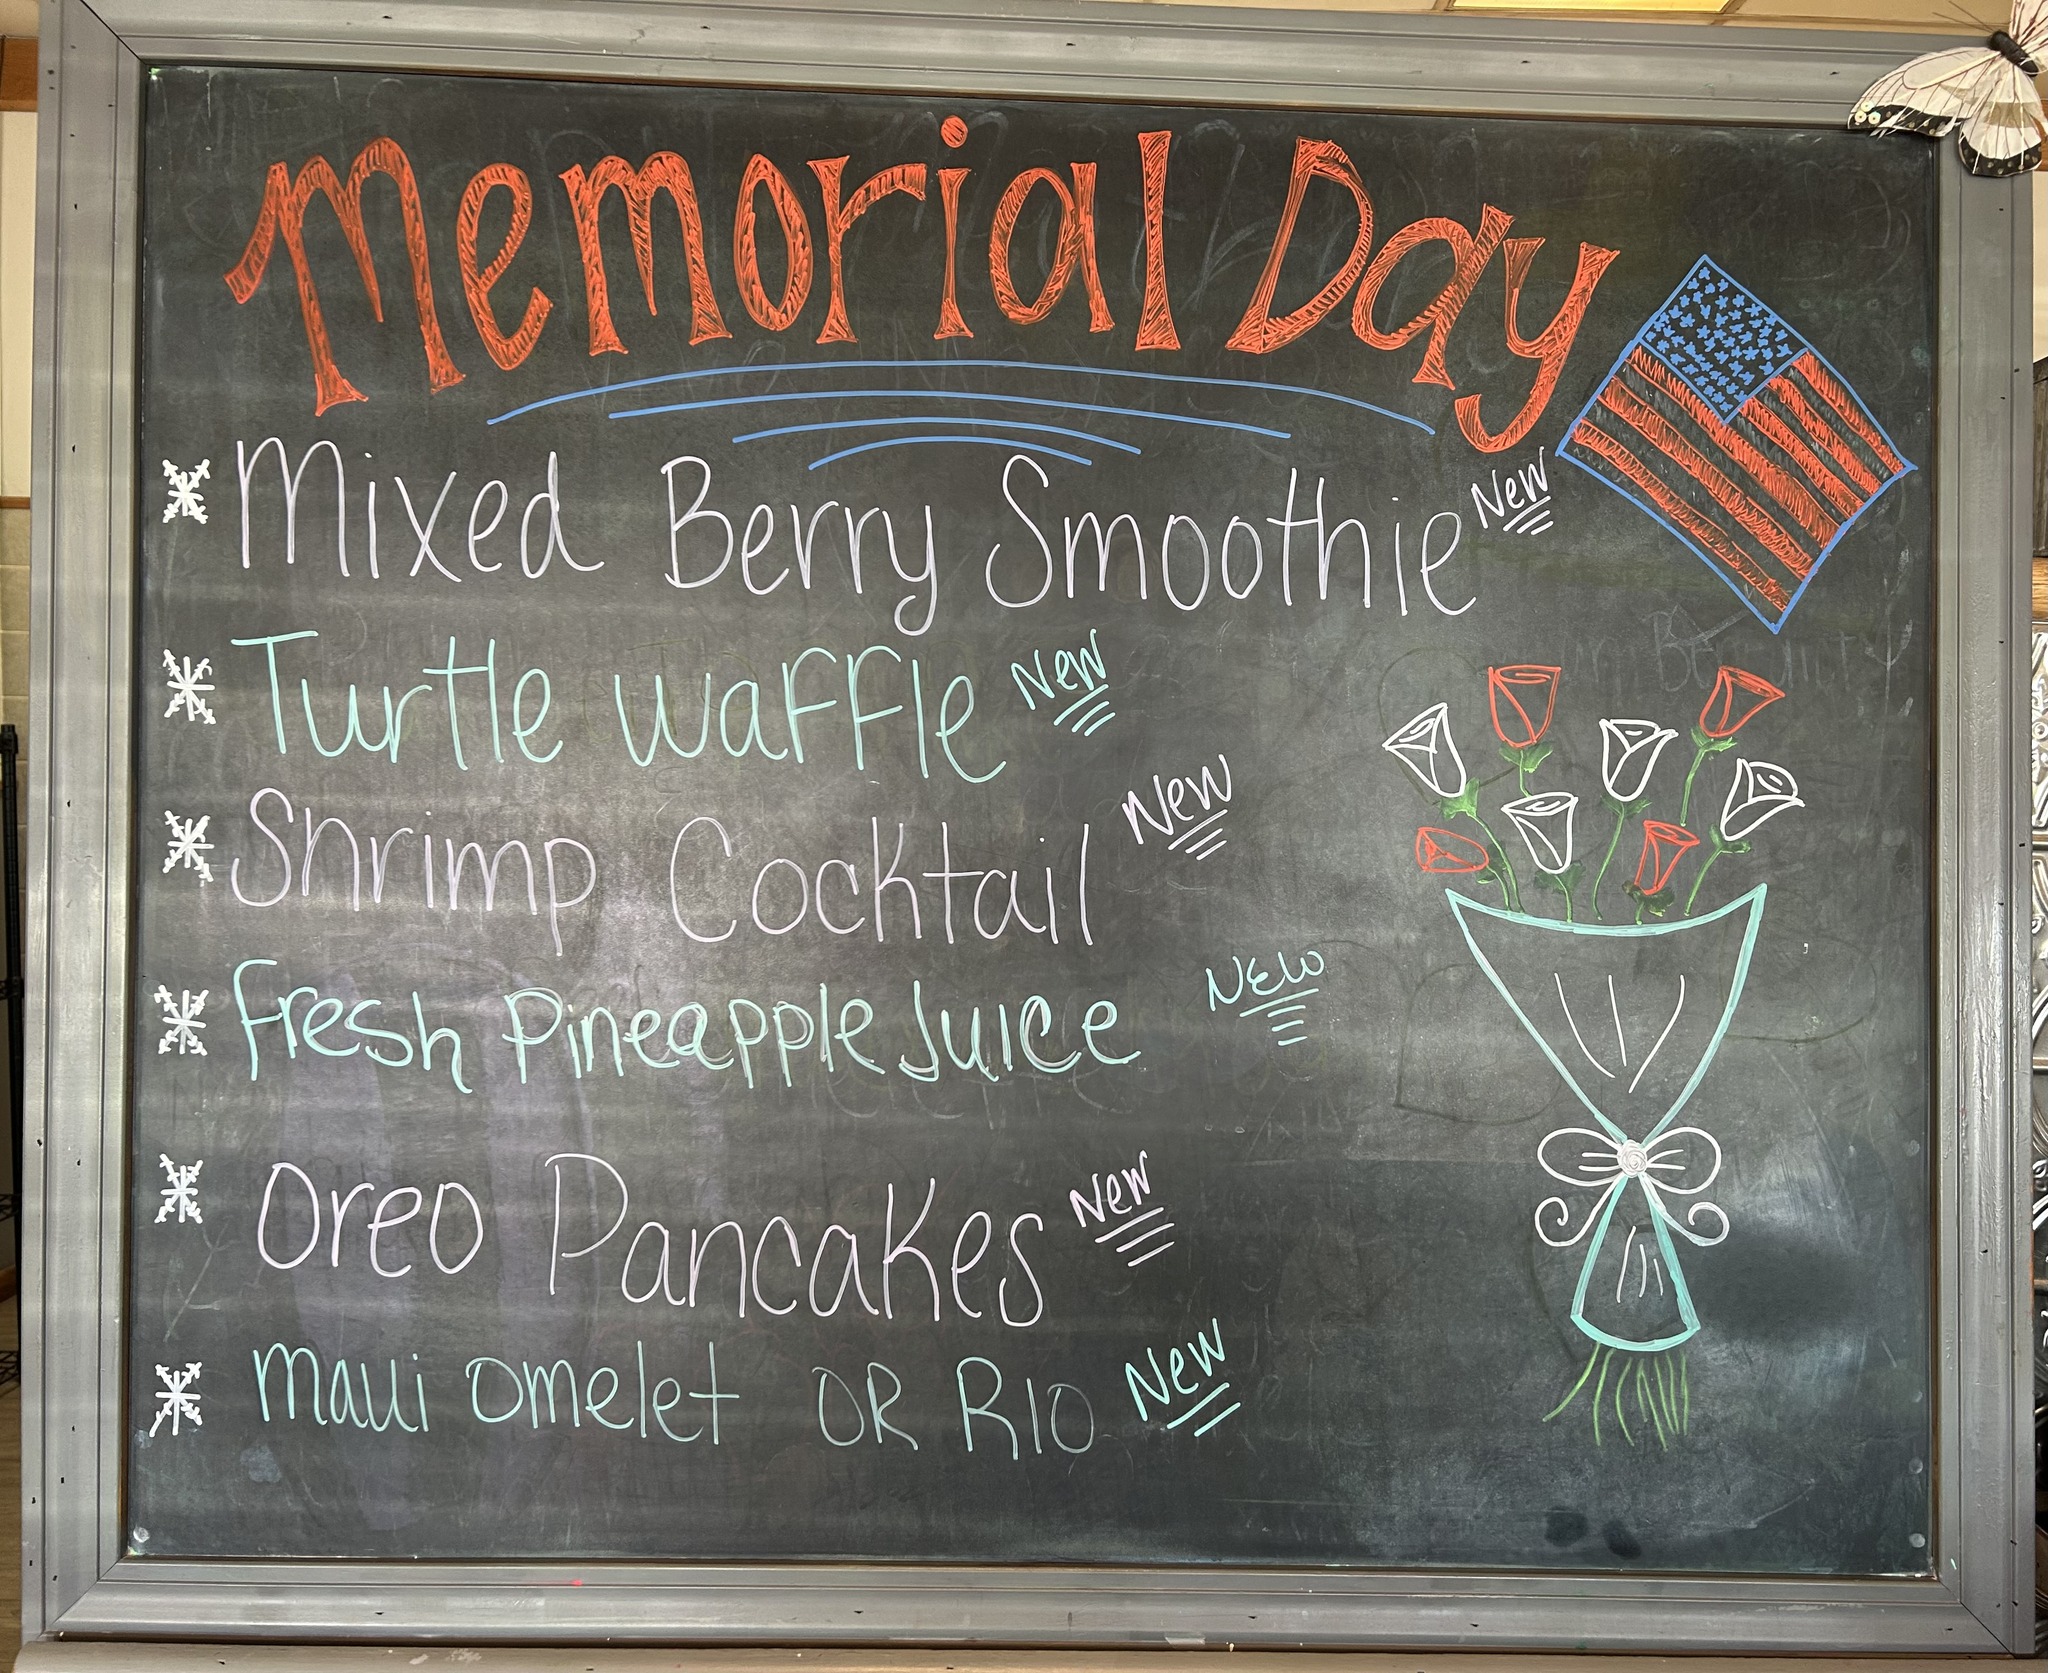 Memorial Day
Mixed Berry Smoothie New
Turtle Waffle New
Shrimp Cocktail New
Fresh Pineapple Juice New
Oreo Pancakes New
Maui Omelet OR RIO New